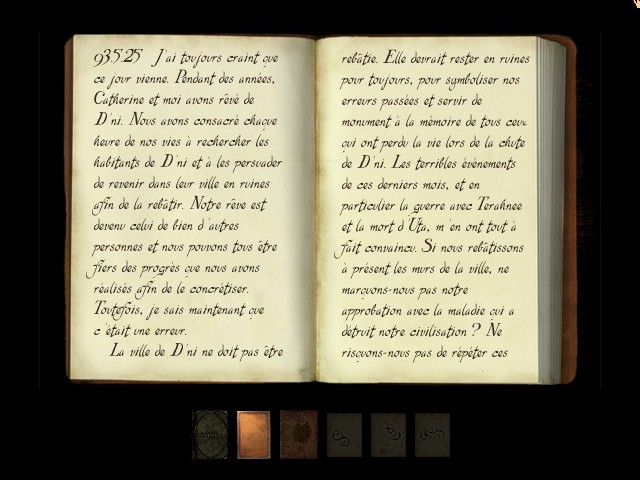 93.5.25 J'ai toujours craint que
ce jour vienne. Pendant des années,
Catherine et moi avons rêvé de
D'ni. Nous avons consacré chaque
heure de nos vies à rechercher les
habitants de D'ni et à les persuader
de revenir dans leur ville en ruines
afin de la rebâtir. Notre rêve est
devenu celui de bien d'autres
personnes et nous pouvons tous être
fiers des progrès que nous avons
réalisés afin de le concrétiser.
Toutefois, je sais maintenant que
c'était une erreur.
La ville de D'ni ne doit pas être
rebâtie. Elle devrait rester en ruines
pour toujours, pour symboliser nos
erreurs passées et servir de
monument à la mémoire de tous ceux
qui ont perdu la vie lors de la chute
de D'ni. Les terribles événements
de ces derniers mois, et en
particulier la guerre avec Terahnee
et la mort d'Uta, m'en ont tout à
fait convaincu. Si nous rebâtissons
à présent les murs de la ville, ne
marquons-nous pas notre
approbation avec la maladie qui a
détruit notre civilisation ? Ne
risquons-nous pas de répéter ces